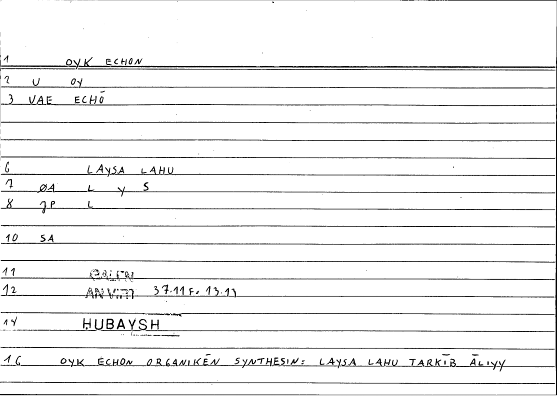 1 OYK ECHON
2 U OY
3 VAE ECHŌ
6 LAYSA LAHU
7 ØA L Y S
8 JP L
10 SA
11 GALEN
12 AN VIRT 37.11 F. 13.11
14 HUBAYSH
16 OYK ECHON ORGANIKĒN SYNTHESIN: LAYSA LAHU TARKĪB ĀLIYY